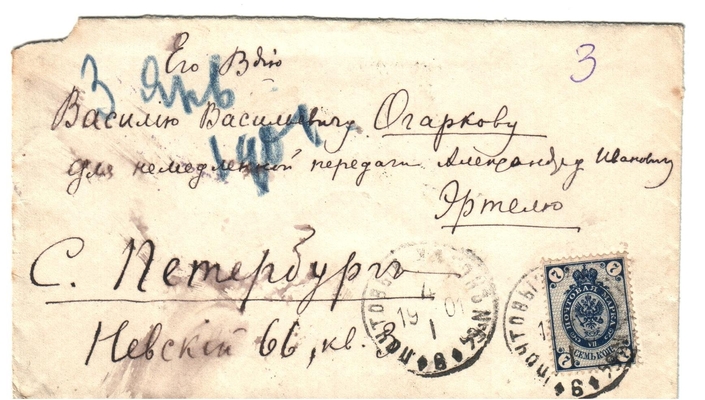 Его Вдію
3
3 Янв
1901.
Василію Васильевичу Огаркову
для немедленной передачи Александру Ивановичу
Эртелю
С. Петербургъ
Невскій 66, кв. 3
ПОЧТОВЫЙ ВАГОНЪ
4
19 01
I
7 7
ПОЧТОВАЯ МАРКА
СЕМЬ КОП.
7 7
ПОЧТОВЫЙ